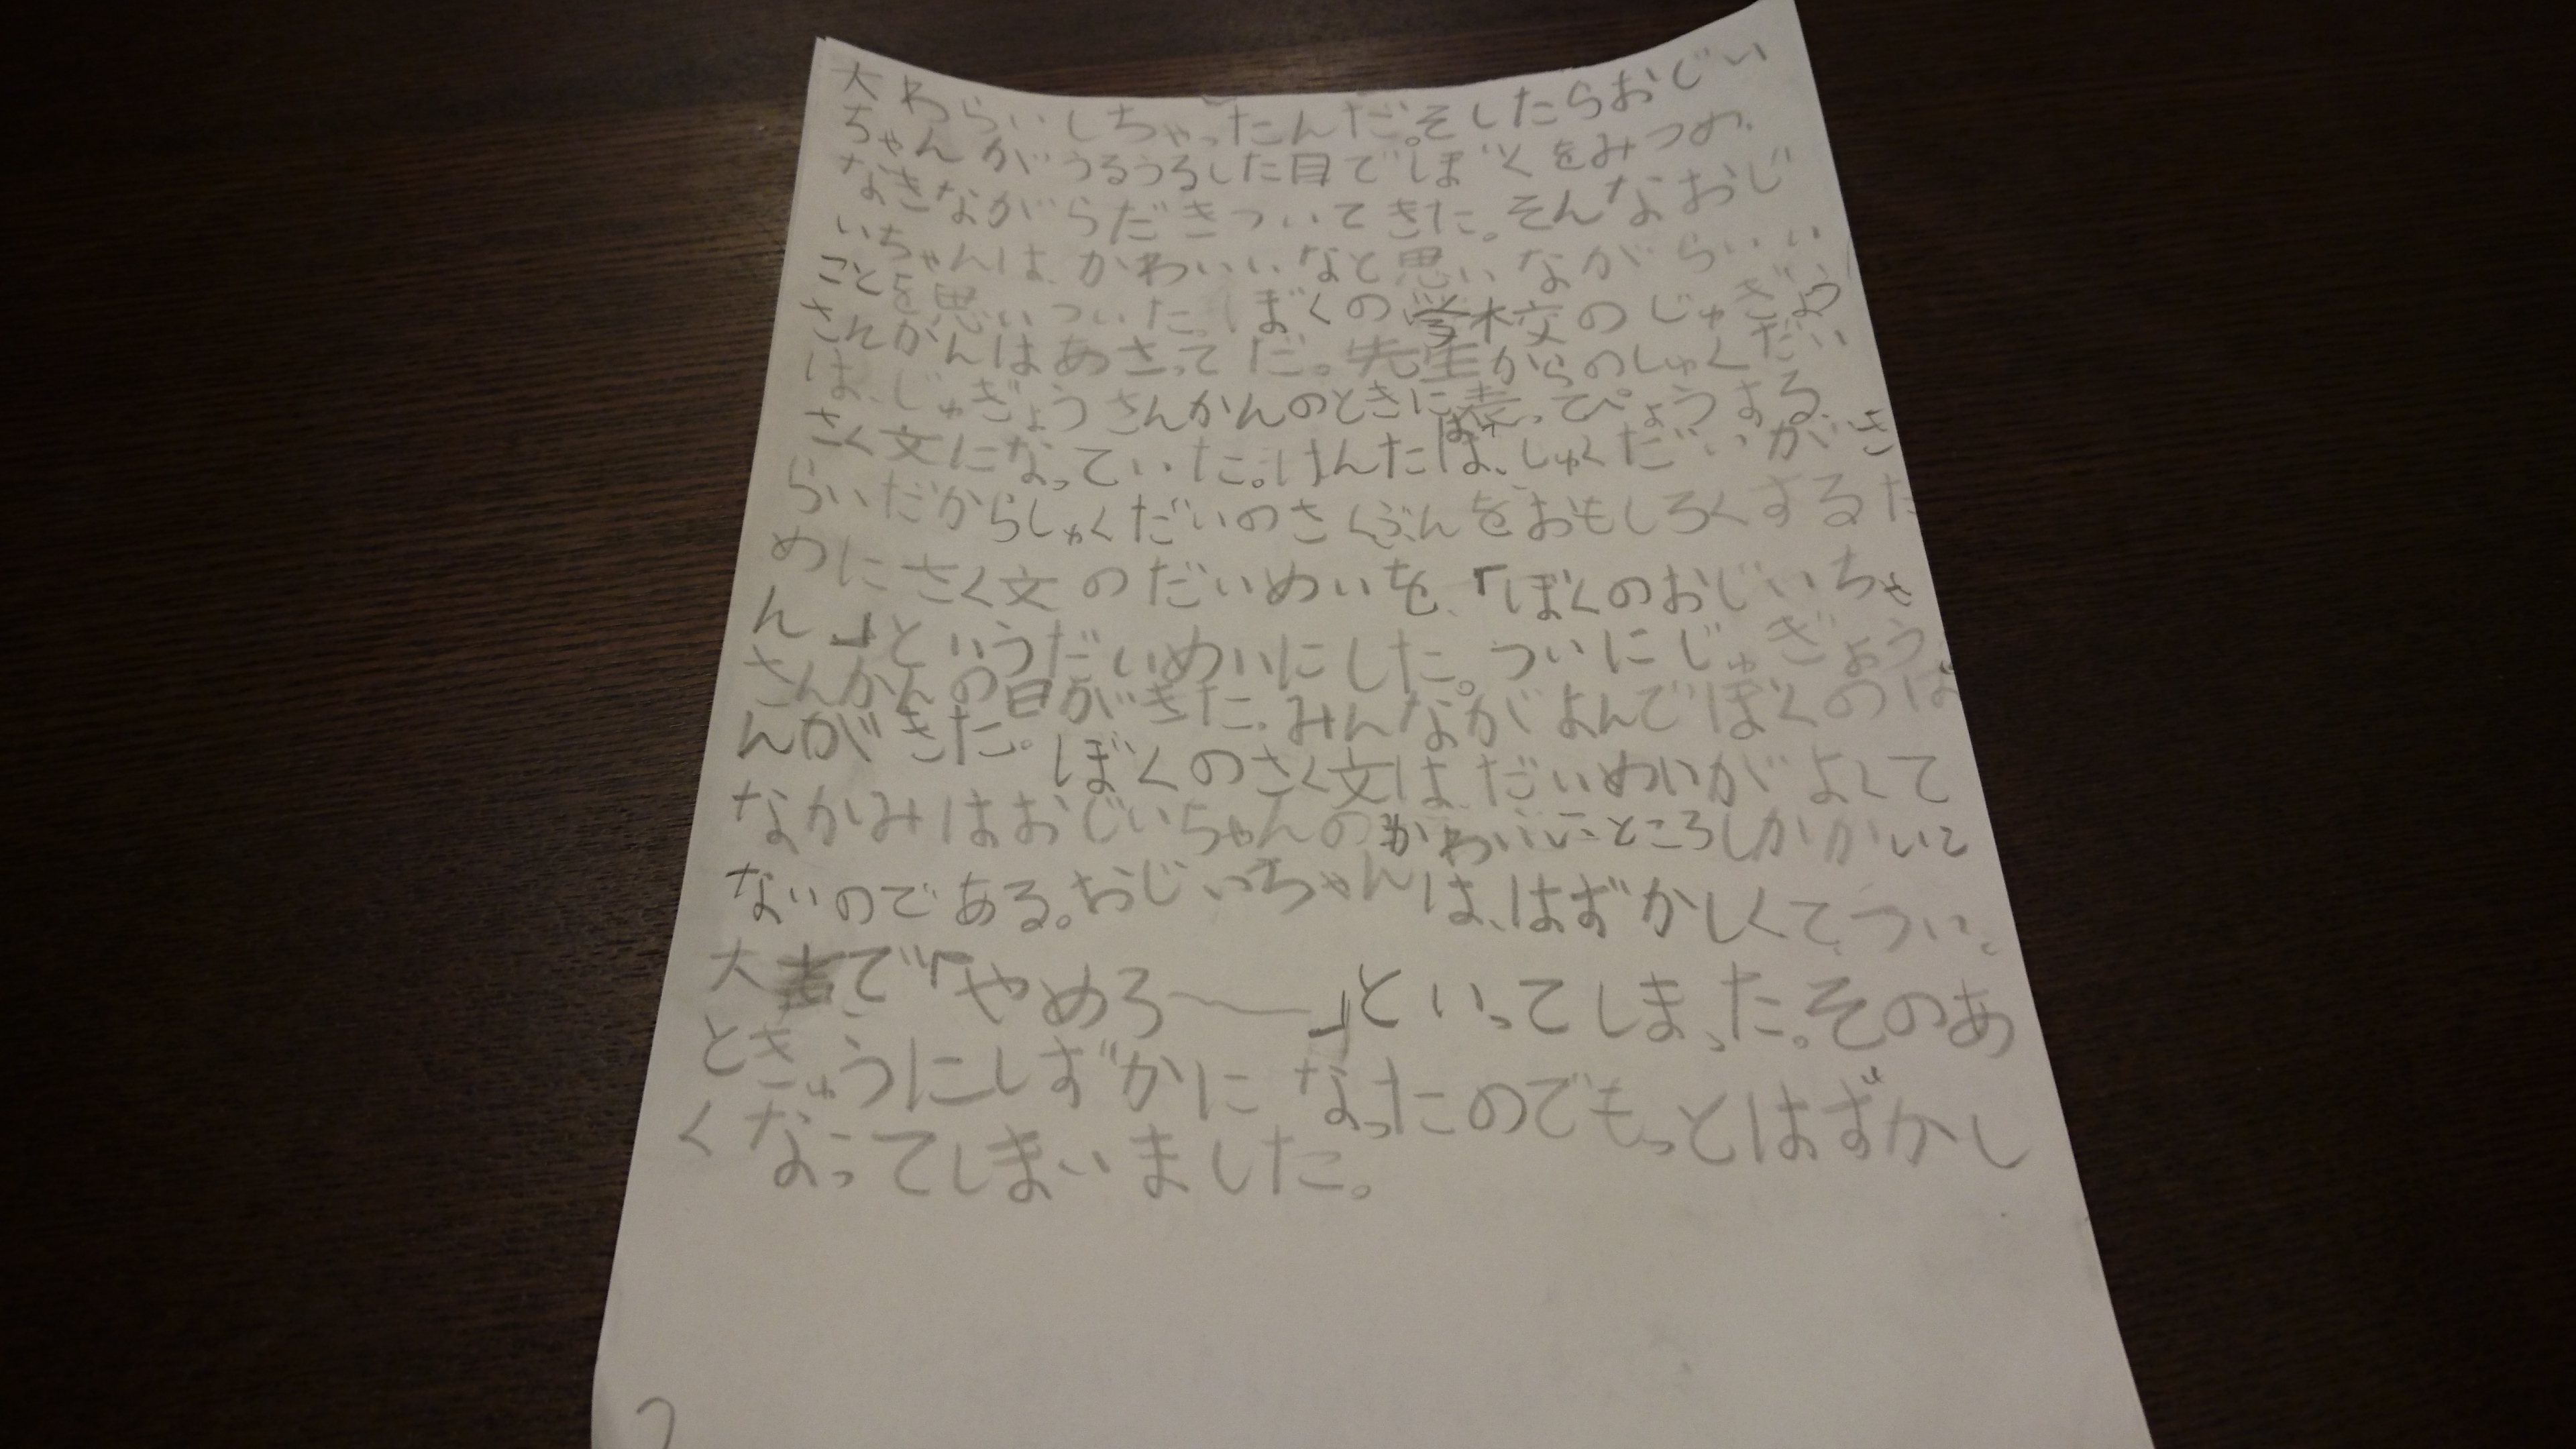 大わらいしちゃったんだ。そしたらおじい
ちゃんがうるうるした目でぼくをみつめ、
なきながらだきついてきた。そんなおじ
いちゃんは、かわいいなと思いながらいい
ことを思いついた。ぼくの学校のじゅぎょう
さんかんはあさってだ。先生からのしゅくだい
は、じゅぎょうさんかんのときに表っぴょうする
さく文になっていた。けんたは、しゅくだいがき
らいだからしゅくだいのさくぶんをおもしろくするた
めにさく文のだいめいを、「ぼくのおじいちゃ
ん」というだいめいにした。ついにじゅぎょう
さんかんの日がきた。みんながよんでぼくのば
んがきた。ぼくのさく文は、だいめいがよくて
なかみはおじいちゃんのかわいいところしかかいて
ないのである。おじいちゃんは、はずかしくて、つい、
大声で「やめろ〜」といってしまった。そのあ
ときゅうにしずかになったのでもっとはずかし
くなってしまいました。